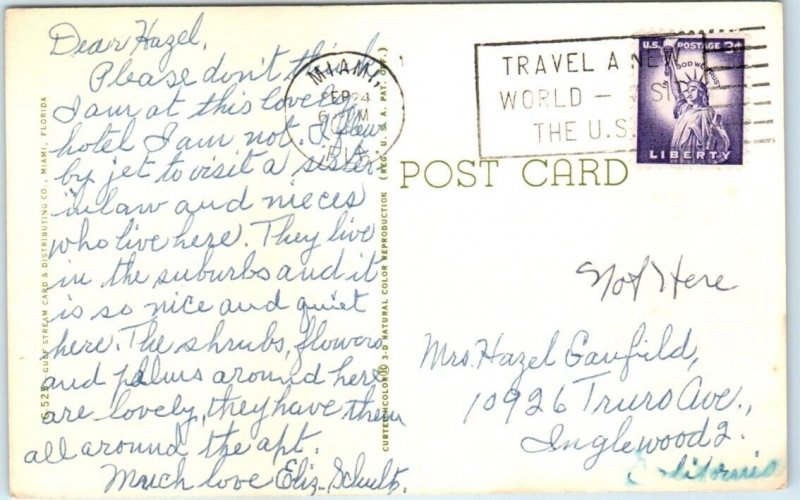 Dear Hazel,
Please don't think
I am at this lovely
hotel I am not. I flew
by jet to visit a sister-
in law and nieces
who live here. They live
in the suburbs and it
is so nice and quiet
here. The shrubs, flowers
and palms around here
are lovely, they have them
all around the apt.
Much love Eliz. Schultz.
GULF STREAM CARD & DISTRIBUTING CO., MIAMI, FLORIDA
CURTEICHCOLOR® 3-D NATURAL COLOR REPRODUCTION (REG. U. S. A. PAT. OFF.)
MIAMI,
SEP 24
PM
TRAVEL A NEW
WORLD —
THE U.S.
U.S. POSTAGE 3¢
LIBERTY
POST CARD
Not Here
Mrs. Hazel Canfield,
10926 Truro Ave.,
Inglewood 2.
California